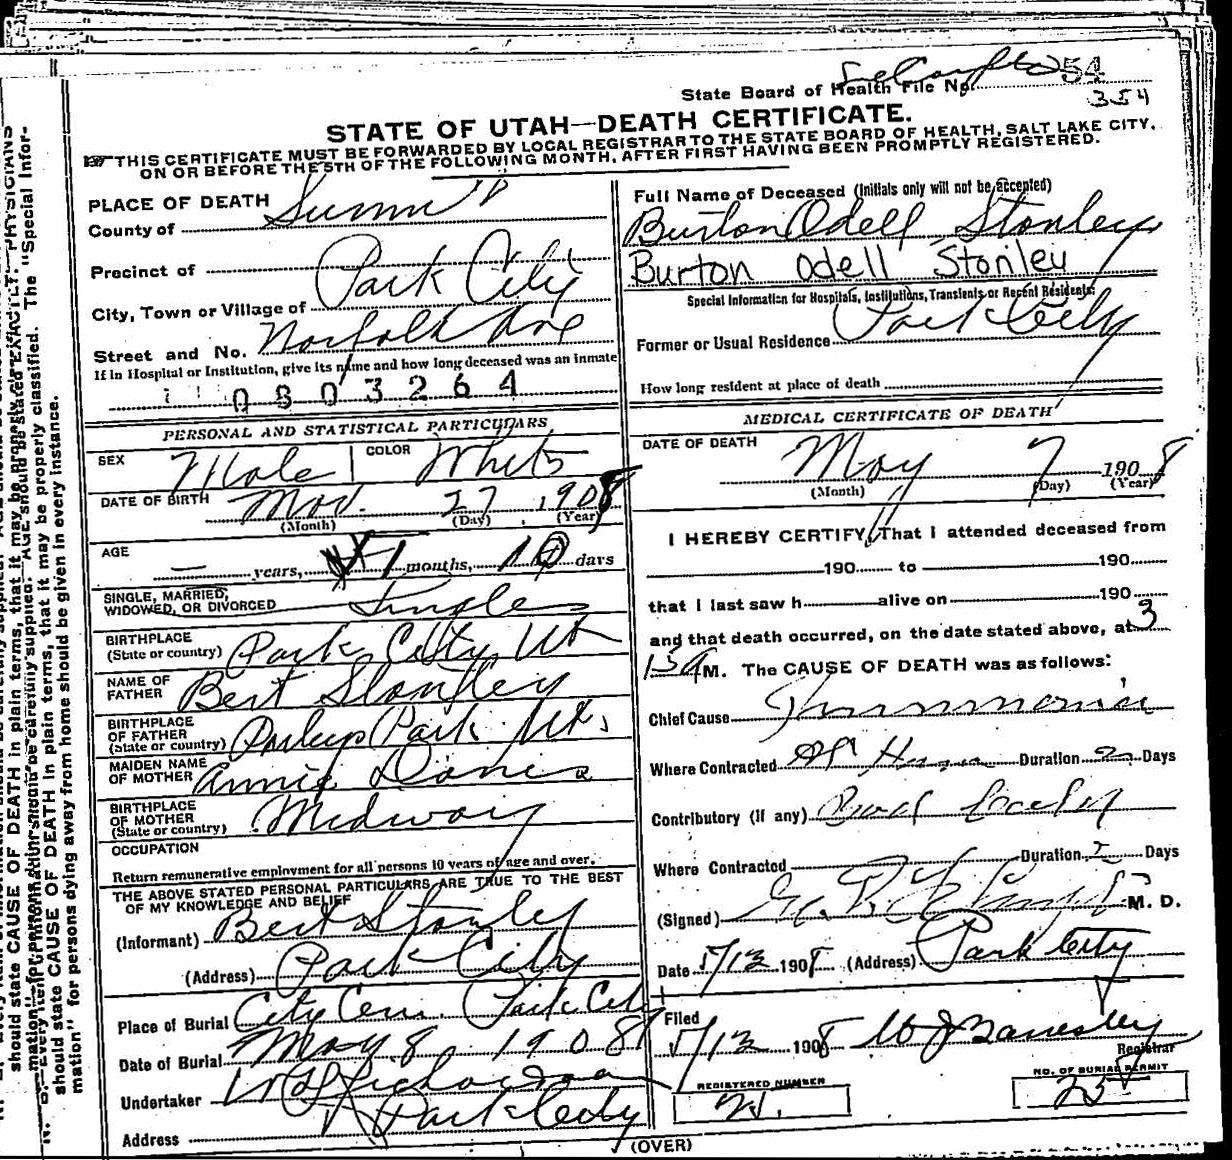 State Board of Health File No. 54
354
STATE OF UTAH—DEATH CERTIFICATE.
THIS CERTIFICATE MUST BE FORWARDED BY LOCAL REGISTRAR TO THE STATE BOARD OF HEALTH, SALT LAKE CITY,
ON OR BEFORE THE 5TH OF THE FOLLOWING MONTH, AFTER FIRST HAVING BEEN PROMPTLY REGISTERED.
PLACE OF DEATH
County of Summit
Precinct of
City, Town or Village of Park City
Street and No. Norfolk Ave
If in Hospital or Institution, give its name and how long deceased was an inmate
0803264
PERSONAL AND STATISTICAL PARTICULARS
SEX Male COLOR White
DATE OF BIRTH Mar. 27 1908
(Month) (Day) (Year)
AGE
— years, 1 months, 10 days
SINGLE, MARRIED,
WIDOWED, OR DIVORCED Single
BIRTHPLACE
(State or country) Park City Ut
NAME OF
FATHER Bert Stonley
BIRTHPLACE
OF FATHER
(State or country) Parleys Park Ut.
MAIDEN NAME
OF MOTHER Annie
BIRTHPLACE
OF MOTHER
(State or country) Midway
OCCUPATION
Return remunerative employment for all persons 10 years of age and over.
THE ABOVE STATED PERSONAL PARTICULARS ARE TRUE TO THE BEST
OF MY KNOWLEDGE AND BELIEF
(Informant) Bert Stonley
(Address) Park City
Place of Burial City Cem. Park City
Date of Burial May 8 1908
Undertaker Richardson
Address Park City
Full Name of Deceased (Initials only will not be accepted)
Burton Odell Stonley
Burton Odell Stonley
Special Information for Hospitals, Institutions, Transients or Recent Residents:
Former or Usual Residence Park City
How long resident at place of death
MEDICAL CERTIFICATE OF DEATH
DATE OF DEATH May 7 1908
(Month) (Day) (Year)
I HEREBY CERTIFY, That I attended deceased from
190 to 190
that I last saw h alive on 190
and that death occurred, on the date stated above, at 3
15a M. The CAUSE OF DEATH was as follows:
Chief Cause Pneumonia
Where Contracted At Home Duration 2 Days
Contributory (if any)
Where Contracted Duration 2 Days
(Signed) M. D.
Date 5/13 1908 (Address) Park City
Filed
5/13 1908
Registrar
REGISTERED NUMBER
25.
NO. OF BURIAL PERMIT
25
(OVER)
should state CAUSE OF DEATH in plain terms, that it may be properly classified. The "Special Infor-
mation" for persons dying away from home should be given in every instance.